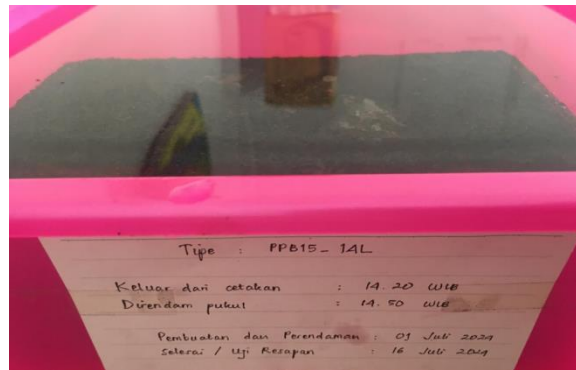 Tipe : PPB15_ 14L
Keluar dari cetakan : 14.20 WIB
Direndam pukul : 14.50 WIB
Pembuatan dan Perendaman : 09 Juli 2024
Selesai / Uji Resapan : 16 Juli 2024